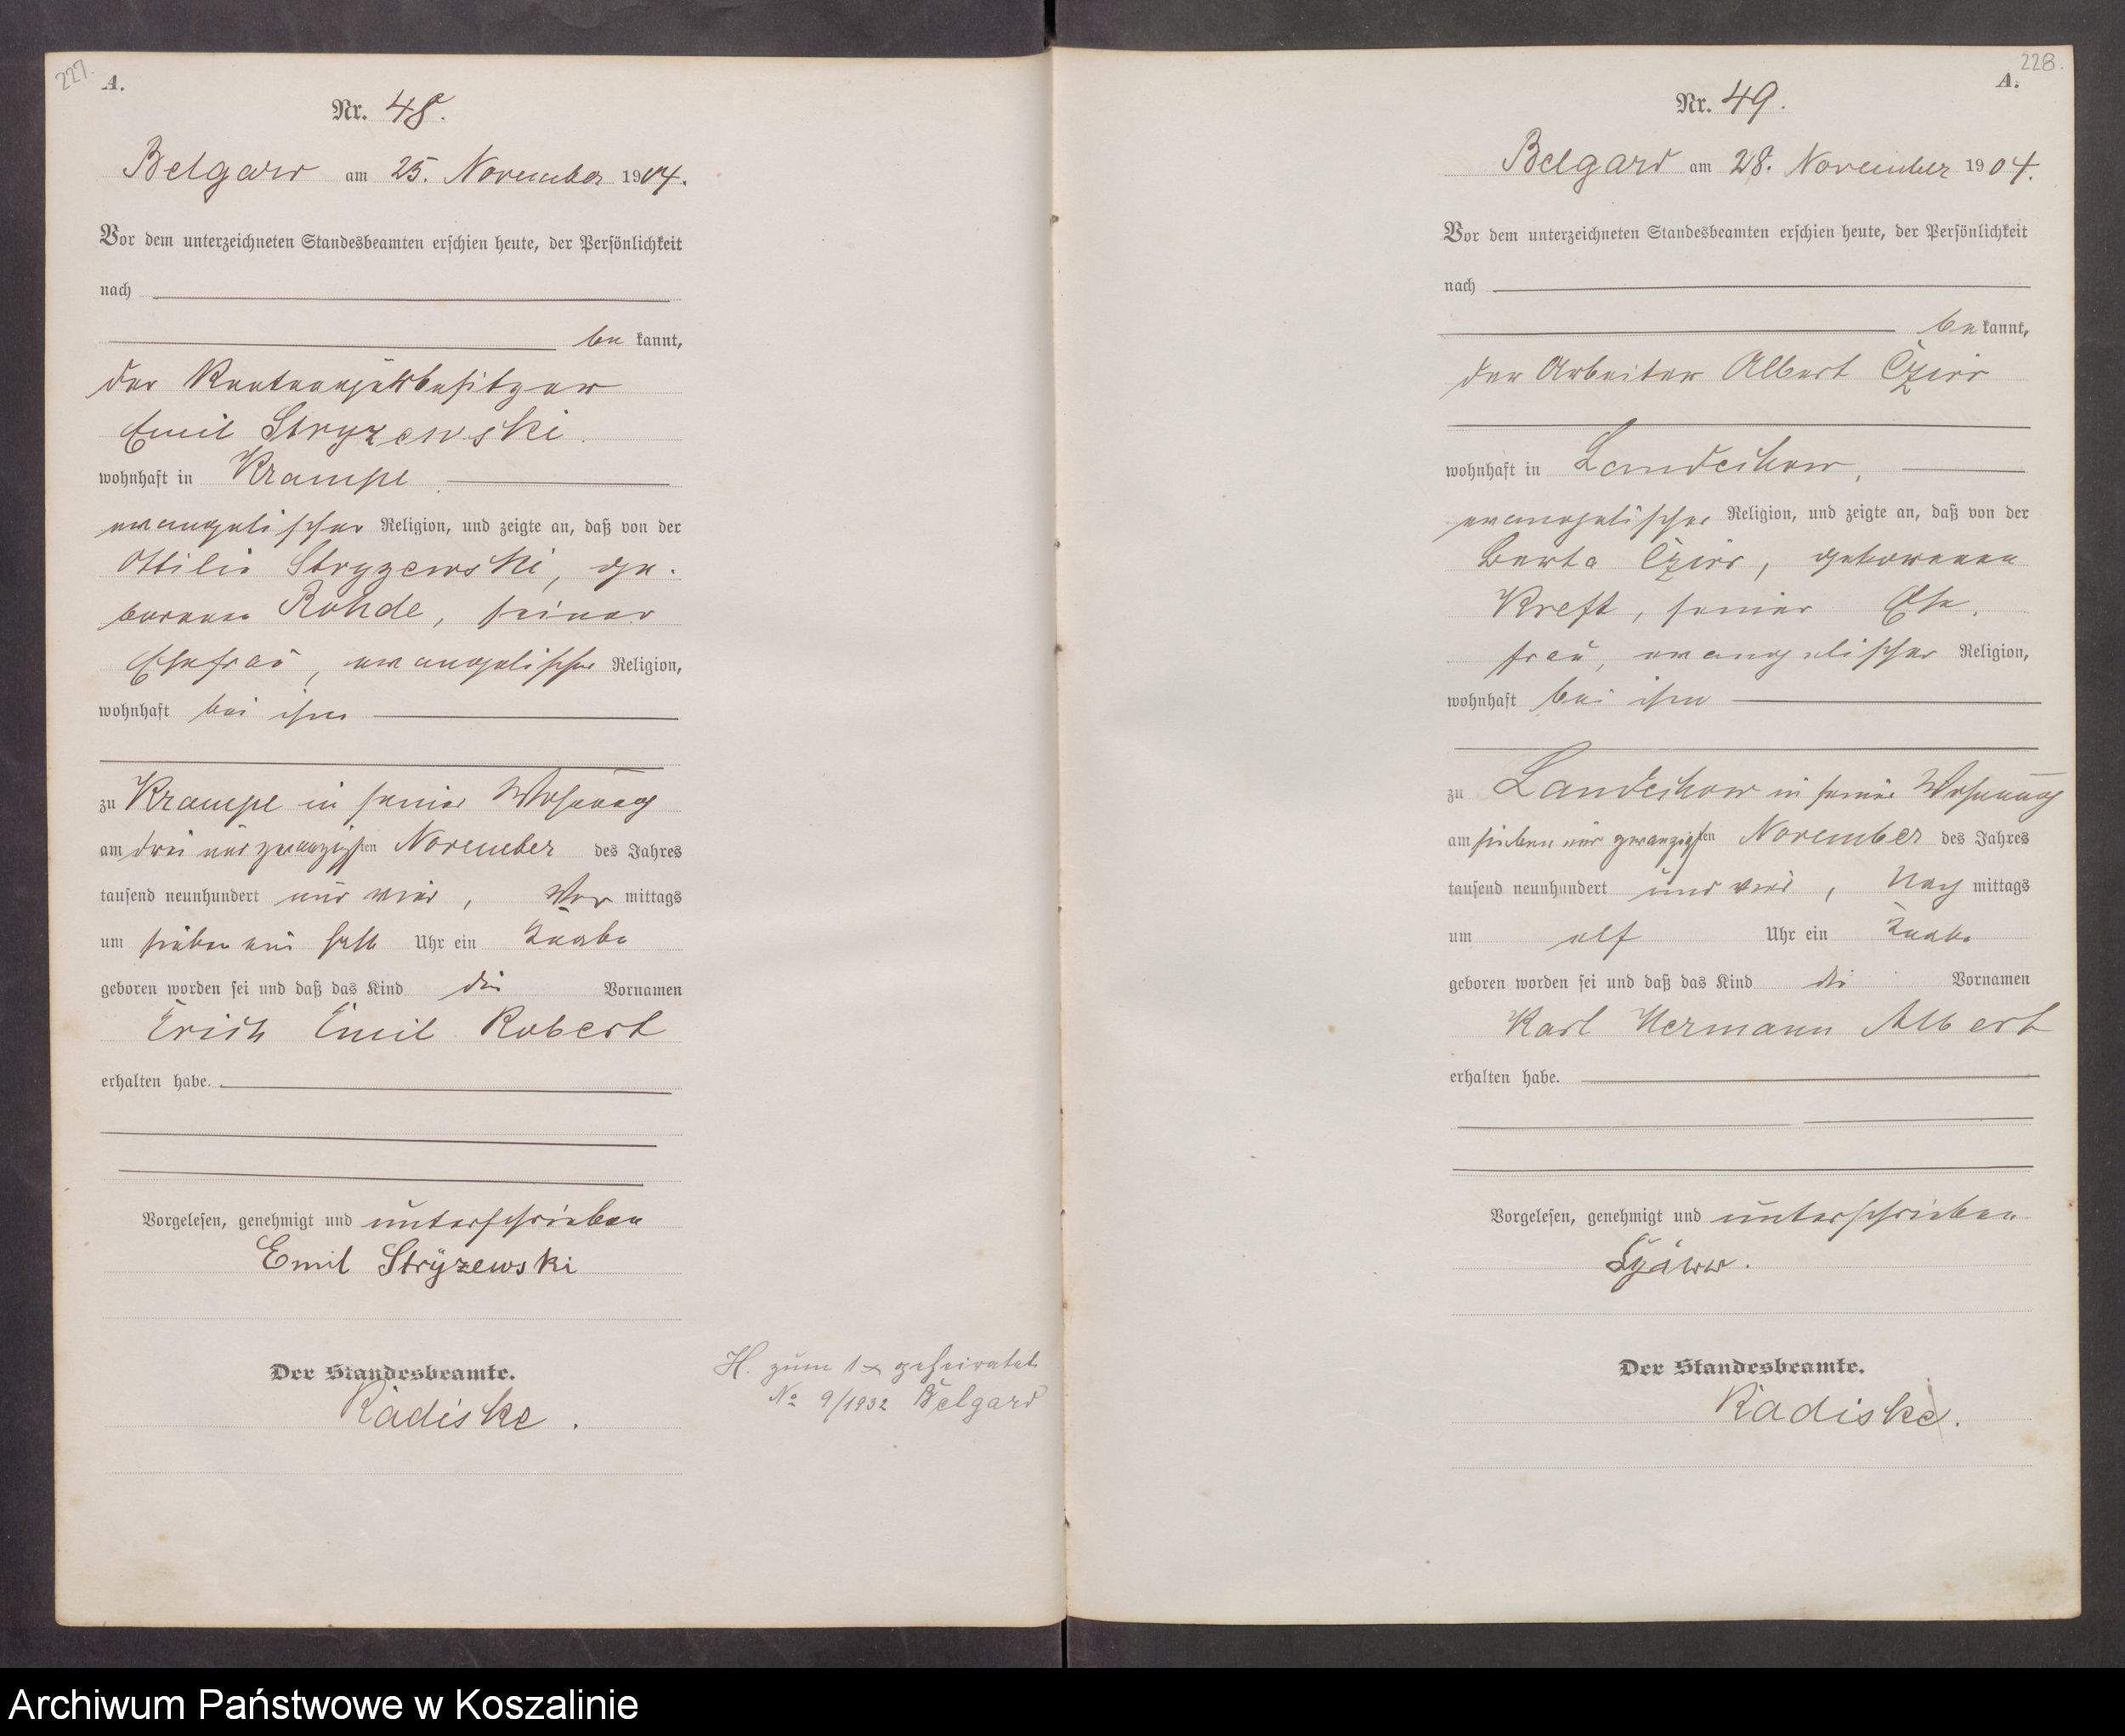 227.
A.
Nr. 48.
Belgard am 25. November 1904.
Vor dem unterzeichneten Standesbeamten erschien heute, der Persönlichkeit
nach
be kannt,
der Rentengutsbesitzer
Emil Stryzewski
wohnhaft in Krampe
evangelischer Religion, und zeigte an, daß von der
Ottilie Stryzewski, ge-
borenen Rohde, seiner
Ehefrau, evangelischer Religion,
wohnhaft bei ihm
zu Krampe in seiner Wohnung
am drei und zwanzigsten November des Jahres
tausend neunhundert und vier, Vor mittags
um sieben ein halb Uhr ein Knabe
geboren worden sei und daß das Kind die Vornamen
Erich Emil Robert
erhalten habe.
Vorgelesen, genehmigt und unterschrieben
Emil Strÿzewski
Der Standesbeamte.
Radiske.
H. zum 1 x geheiratet
No 9/1932 Belgard
228.
A.
Nr. 49.
Belgard am 28. November 1904.
Vor dem unterzeichneten Standesbeamten erschien heute, der Persönlichkeit
nach
be kannt,
der Arbeiter Albert Czirr
wohnhaft in Landechow,
evangelischer Religion, und zeigte an, daß von der
Berta Czirr, geborenen
Kreft, seiner Ehe-
frau, evangelischer Religion,
wohnhaft bei ihm
zu Landechow in seiner Wohnung
am sieben und zwanzigsten November des Jahres
tausend neunhundert und vier, Nach mittags
um elf Uhr ein Knabe
geboren worden sei und daß das Kind die Vornamen
Karl Hermann Albert
erhalten habe.
Vorgelesen, genehmigt und unterschrieben
Der Standesbeamte.
Radiske.
Archiwum Państwowe w Koszalinie